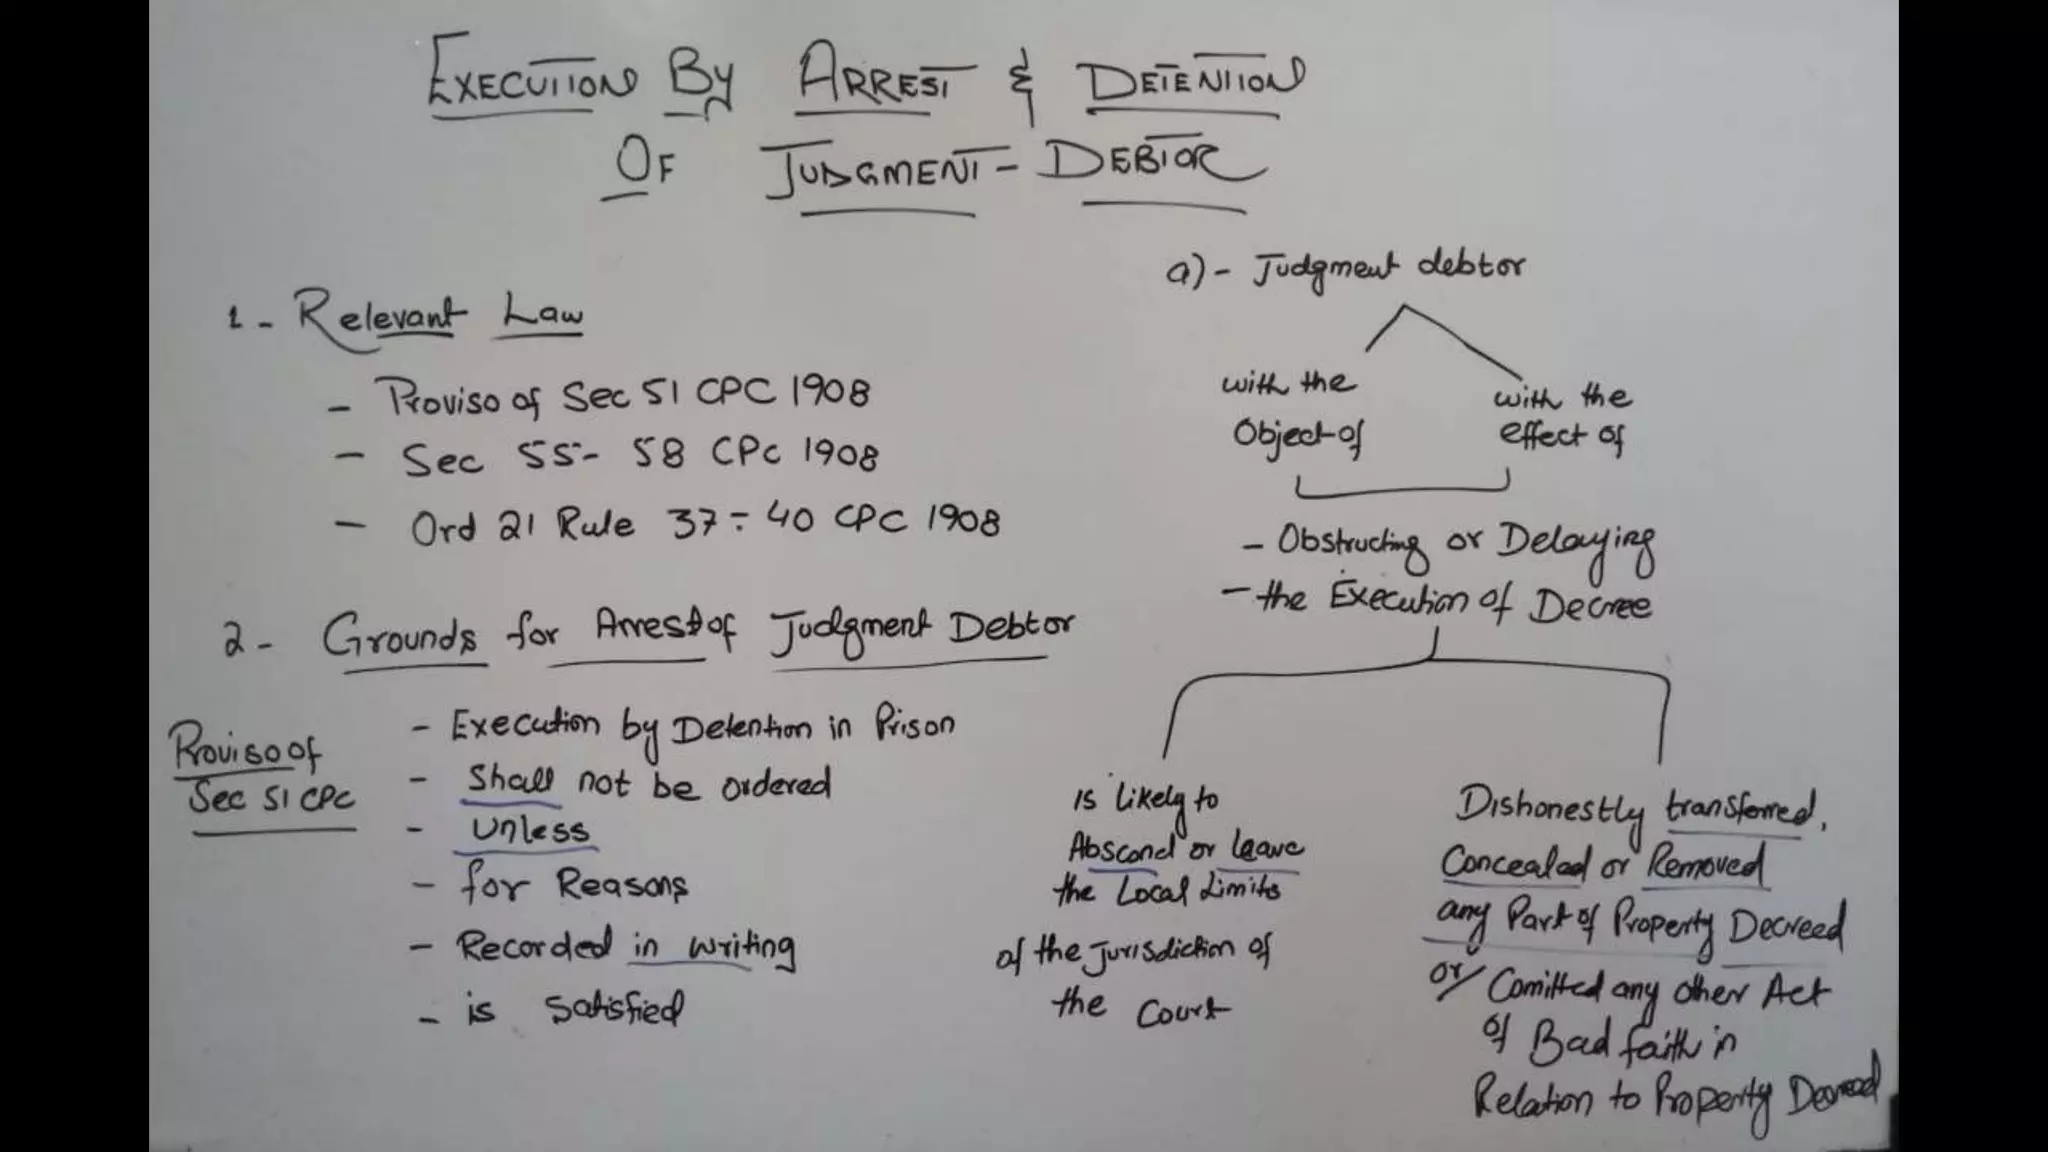 EXECUTION BY ARREST & DETENTION
OF JUDGMENT-DEBTOR
1- Relevant Law
- Proviso of Sec 51 CPC 1908
- Sec 55-58 CPC 1908
- Ord 21 Rule 37-40 CPC 1908
2- Grounds for Arrest of Judgment Debtor
Proviso of
Sec 51 CPC
- Execution by Detention in Prison
- Shall not be ordered
- Unless
- for Reasons
- Recorded in writing
- is Satisfied
a)- Judgment debtor
with the
Object of
with the
effect of
- Obstructing or Delaying
- the Execution of Decree
is likely to
Abscond or leave
the Local Limits
of the Jurisdiction of
the Court
Dishonestly transferred,
Concealed or Removed
any Part of Property Decreed
or/ Comitted any other Act
of Bad faith in
Relation to Property Decreed